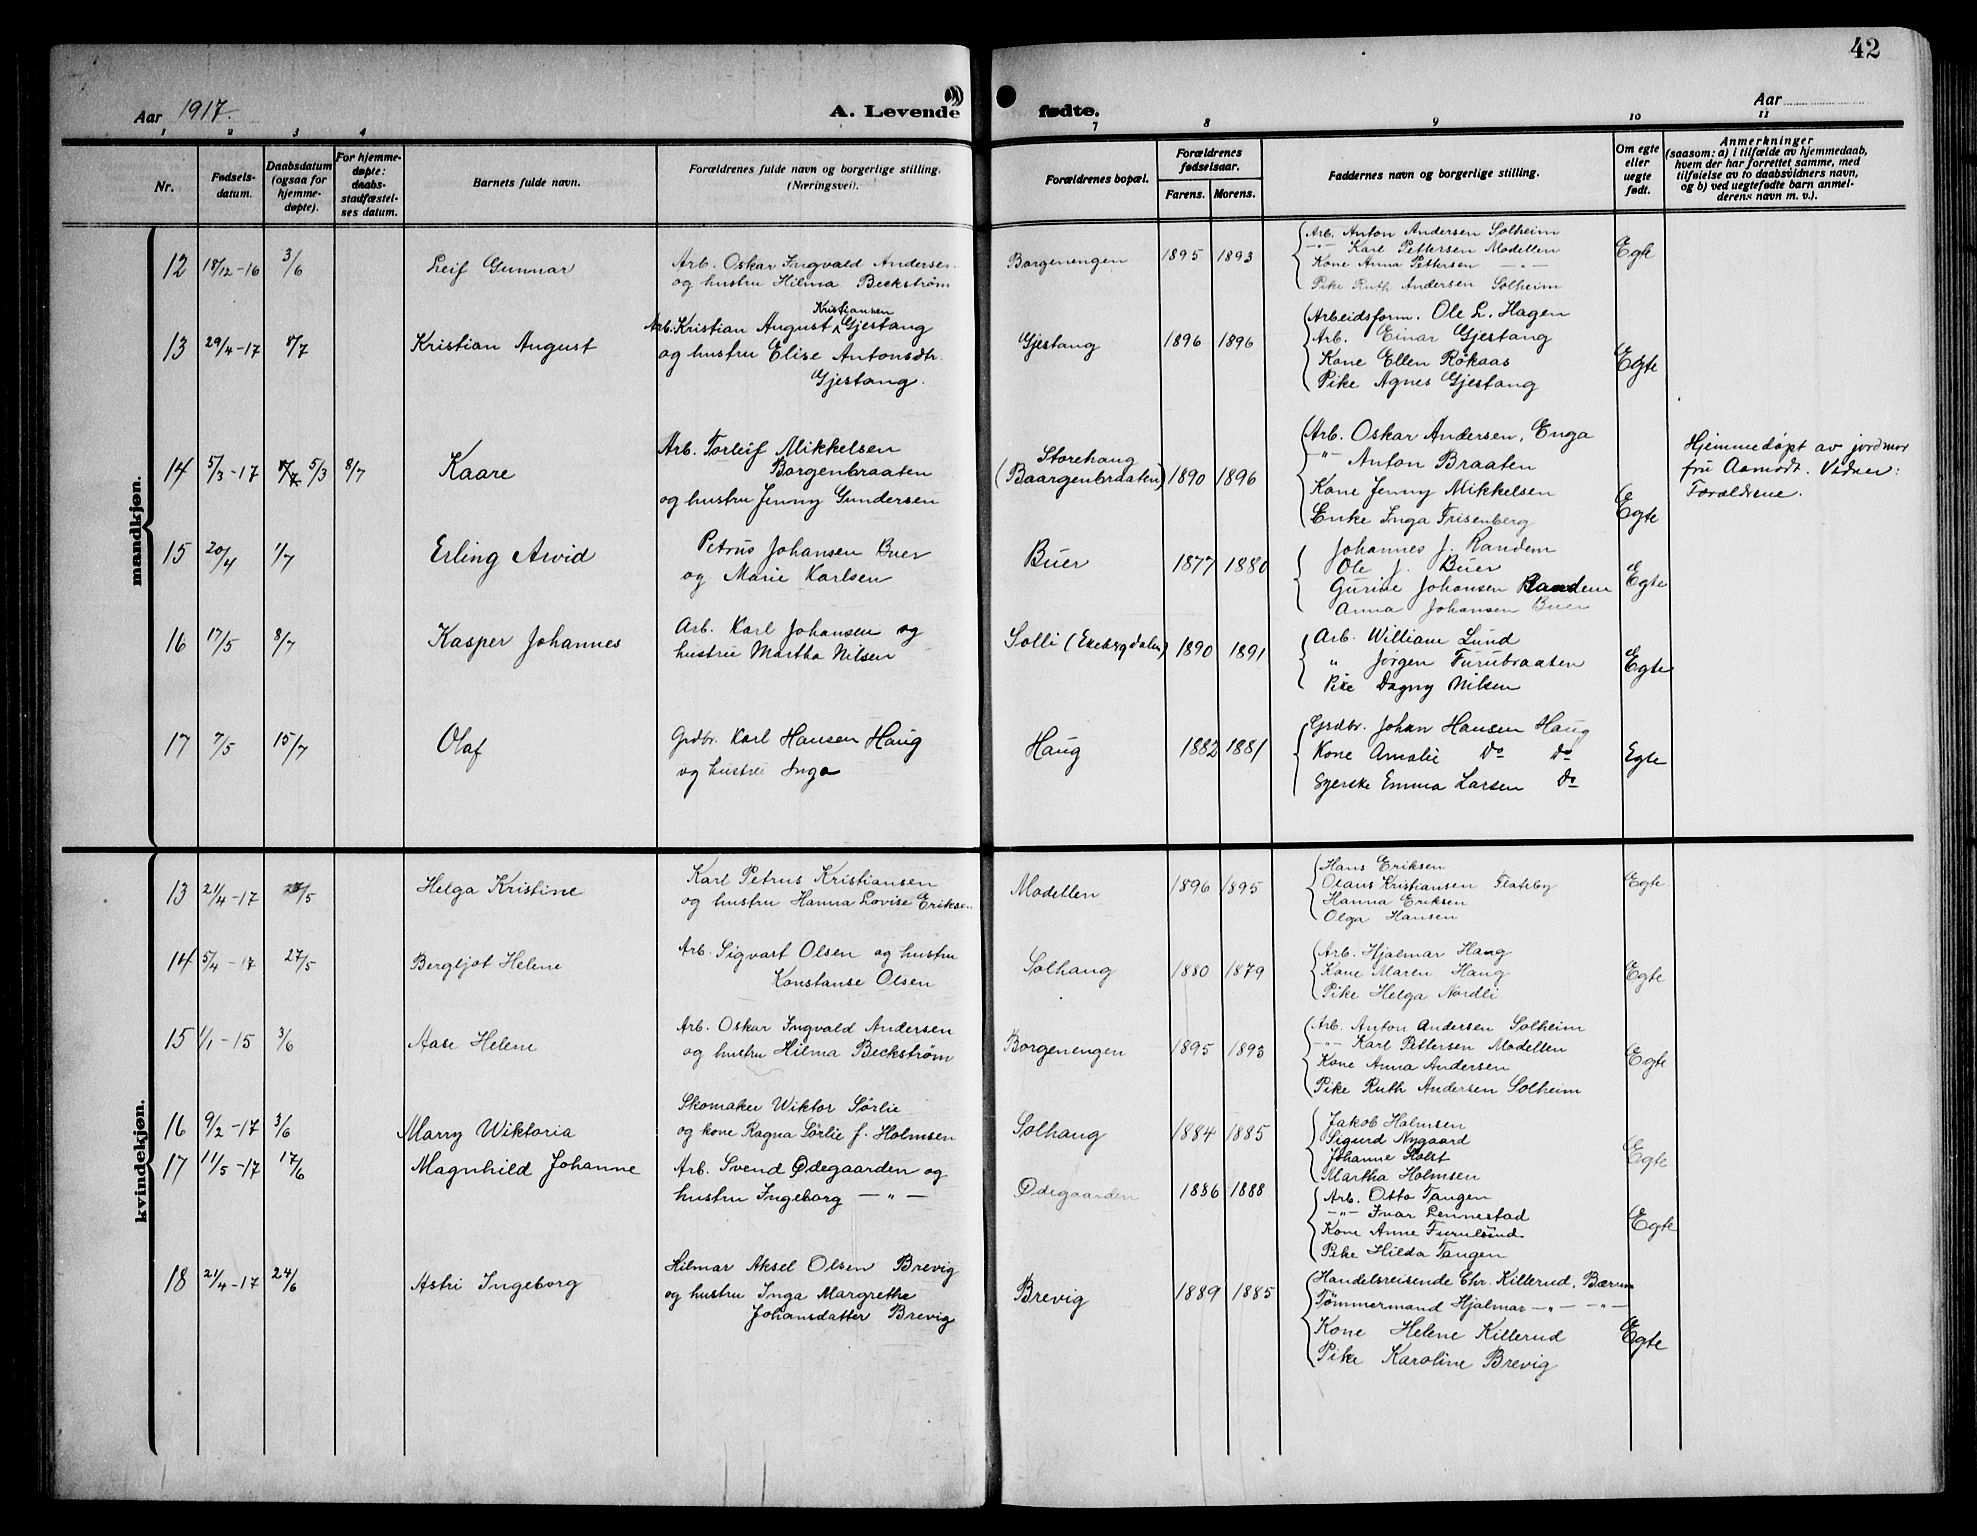 42
Aar 1917.
A. Levende fødte.
Aar
1 2 3 4 7 8 9 10 11
Nr.
Fødsels-
datum.
Daabsdatum
(ogsaa for
hjemme-
døpte).
For hjemme-
døpte:
daabs-
stadfæstel-
ses datum.
Barnets fulde navn.
Forældrenes fulde navn og borgerlige stilling.
(Næringsvei).
Forældrenes bopæl.
Forældrenes
fødselsaar.
Farens. Morens.
Faddernes navn og borgerlige stilling.
Om egte
eller
uegte
født.
Anmerkninger
(saasom: a) i tilfælde av hjemmedaab,
hvem der har forrettet samme, med
tilføielse av to daabsvidners navn,
og b) ved uegtefødte barn anmel-
derens navn m. v.).
mandkjøn.
12 18/12-16 3/6 Leif Gunnar
Arb. Oskar Ingvald Andersen
og hustru Hilma Beckstrøm
Borgenengen 1895 1893
Arb. Anton Andersen Solheim
-"- Karl Pettersen Modellen
Kone Anna Pettersen -"-
Pike Ruth Andersen Solheim
Egte
13 29/4-17 8/7 Kristian August
Kristiansen
Arb. Kristian August Gjestang
og hustru Elise Antonsdtr.
Gjestang.
Gjestang 1896 1896
Arbeidsform. Ole L. Hagen
Arb. Einar Gjestang
Kone Ellen Rökaas
Pike Agnes Gjestang
Egte
14 5/3-17 5/3 8/7 Kaare
Arb. Torleif Mikkelsen
Borgenbraaten
og hustru Jenny Gundersen
Storehaug
(Baargenbraaten) 1890 1896
Arb. Oskar Andersen, Enga
-"- Anton Braaten
Kone Jenny Mikkelsen
Enke Inga Frisenberg
Egte
Hjemmedøpt av jordmor
fru Aamodt. Vidner:
Forældrene.
15 20/4 1/7 Erling Arvid
Petrus Johansen Buer
og Marie Karlsen
Buer 1877 1880
Johannes J. Randem
Ole J. Buer
Gurine Johansen Randem
Anna Johansen Buer
Egte
16 17/5 8/7 Kasper Johannes
Arb. Karl Johansen og
hustru Martha Nilsen
Solli (Ekebergdalen) 1890 1891
Arb. William Lund
" Jørgen Furubraaten
Pike Dagny Nilsen
Egte
17 7/5 15/7 Olaf
Grdbr. Karl Hansen Haug
og hustru Inga
Haug 1882 1881
Grdbr. Johan Hansen Haug
Kone Amalie Do Do
Syerske Emma Larsen Do
Egte
kvindekjøn.
13 21/4-17 28/5 Helga Kristine
Karl Petrus Kristiansen
og hustru Hanna Lovise Eriksen
Modellen 1896 1895
Hans Eriksen
Olaus Kristiansen Flateby
Hanna Eriksen
Olga Hansen
Egte
14 5/4-17 27/5 Bergljot Helene
Arb. Sigvart Olsen og hustru
Konstanse Olsen
Solhaug 1880 1879
Arb. Hjalmar Haug
Kone Maren Haug
Pike Helga Nordli
Egte
15 1/1-15 3/6 Aase Helene
Arb. Oskar Ingvald Andersen
og hustru Hilma Beckstrøm
Borgenengen 1895 1893
Arb. Anton Andersen Solheim
-"- Karl Pettersen Modellen
Kone Anna Andersen
Pike Ruth Andersen Solheim
Egte
16 9/2-17 3/6 Marry Wiktoria
Skomaker Wiktor Sørlie
og kone Ragna Sørlie f. Holmsen
Solhaug 1884 1885
Jakob Holmsen
Sigurd Nygaard
Johanne Holst
Martha Holmsen
Egte
17 11/5-17 17/6 Magnhild Johanne
Arb. Svend Ødegaarden og
hustru Ingeborg -"-
Ødegaarden 1886 1888
Arb. Otto Tangen
-"- Ivar Lennestad
Kone Anne Furulund
Pike Hilda Tangen
Egte
18 21/4-17 24/6 Astri Ingeborg
Hilmar Aksel Olsen Brevig
og hustru Inga Margrethe
Johansdatter Brevig
Brevig 1889 1885
Handelsreisende Chr. Killerud, Bærum
Tømmermand Hjalmar -"- -"-
Kone Helene Killerud
Pike Karoline Brevig
Egte